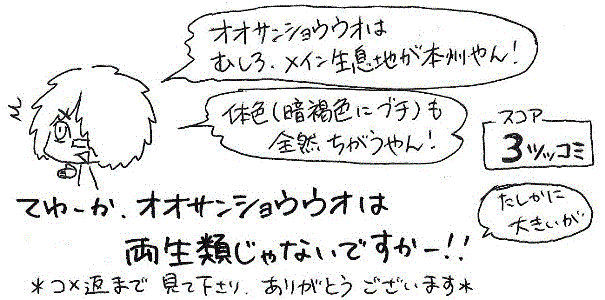 オオサンショウウオは
むしろ、メイン生息地が本州やん！
体色（暗褐色にブチ）も
全然ちがうやん！
スコア
3ツッコミ
てゆーか、オオサンショウウオは
両生類じゃないですかー！！
たしかに
大きいが
＊コメ返まで見て下さり、ありがとうございます＊